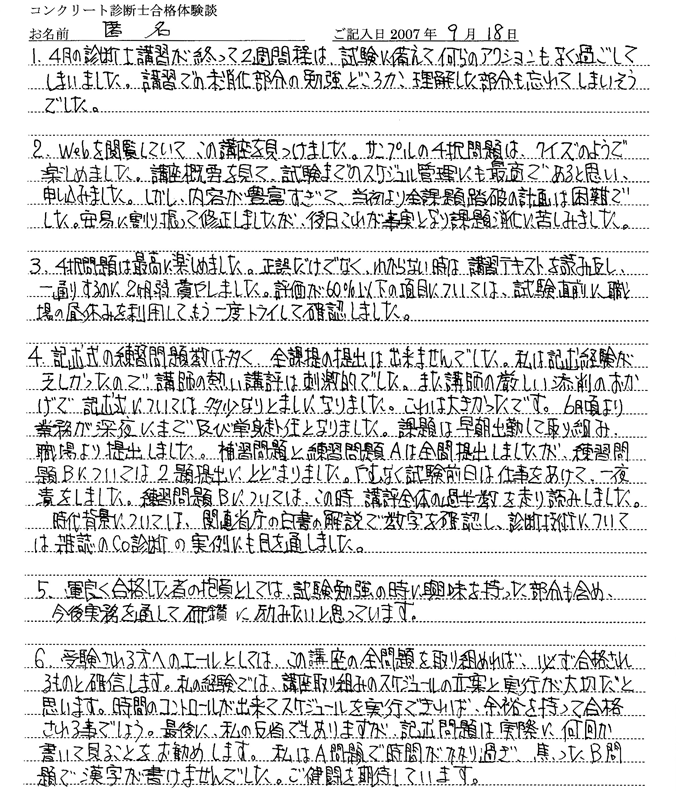 コンクリート診断士合格体験談
お名前 匿名 ご記入日2007年 9月 18日
1. 4月の診断士講習が終って2週間程は、試験に備えて何らのアクションもなく過ごして
しまいました。講習での未消化部分の勉強どころか、理解した部分も忘れてしまいそう
でした。
2. Webを閲覧していてこの講座を見つけました。サンプルの4択問題は、クイズのようで
楽しめました。講座概要を見て、試験までのスケジュル管理にも最高であると思い、
申し込みました。しかし、内容が豊富すぎて、当初より全課題踏破の計画は困難で
した。安易に割り振って修正しましたが、後日これが事実となり課題消化に苦しみました。
3. 4択問題は最高に楽しめました。正誤だけでなく、わからない時は講習テキストを読み返し、
一通りするのに2ヶ月弱費やしました。評価が60%以下の項目については、試験直前に職
場の昼休みを利用してもう一度トライして確認しました。
4. 記述式の練習問題数は多く、全課題の提出は出来ませんでした。私は記述経験が
乏しかったので講師の熱い講評は刺激的でした。また講師の厳しい添削のおか
げで記述式については多少なりとましになりました。これは大きかったです。6月頃より
業務が深夜にまで及び単身赴任となりました。課題は早朝出勤して取り組み、
職場より提出しました。補習問題と練習問題Aは全問提出しましたが、練習問
題Bについては2題提出にとどまりました。やむなく試験前日は仕事をあけて、一夜
漬をしました。練習問題Bについては、この時、講評全体の過半数を走り読みしました。
時代背景については、関連省庁の白書の解説で数字を確認し、診断技術について
は雑誌のCo診断の実例にも目を通しました。
5. 運良く合格した者の抱負としては、試験勉強の時に興味を持った部分も含め、
今後実務を通して研鑽に励みたいと思っています。
6. 受験される方へのエールとしては、この講座の全問題を取り組めれば、必ず合格され
るものと確信します。私の経験では、講座取り組みのスケジュールの立案と実行が大切だと
思います。時間のコントロールが出来てスケジュールを実行できれば、余裕を持って合格
される事でしょう。最後に、私の反省でもありますが、記述問題は実際に何回か
書いて見ることをお勧めします。私はA問題で時間がかかり過ぎ、焦ったB問
題で漢字が書けませんでした。ご健闘を期待しています。